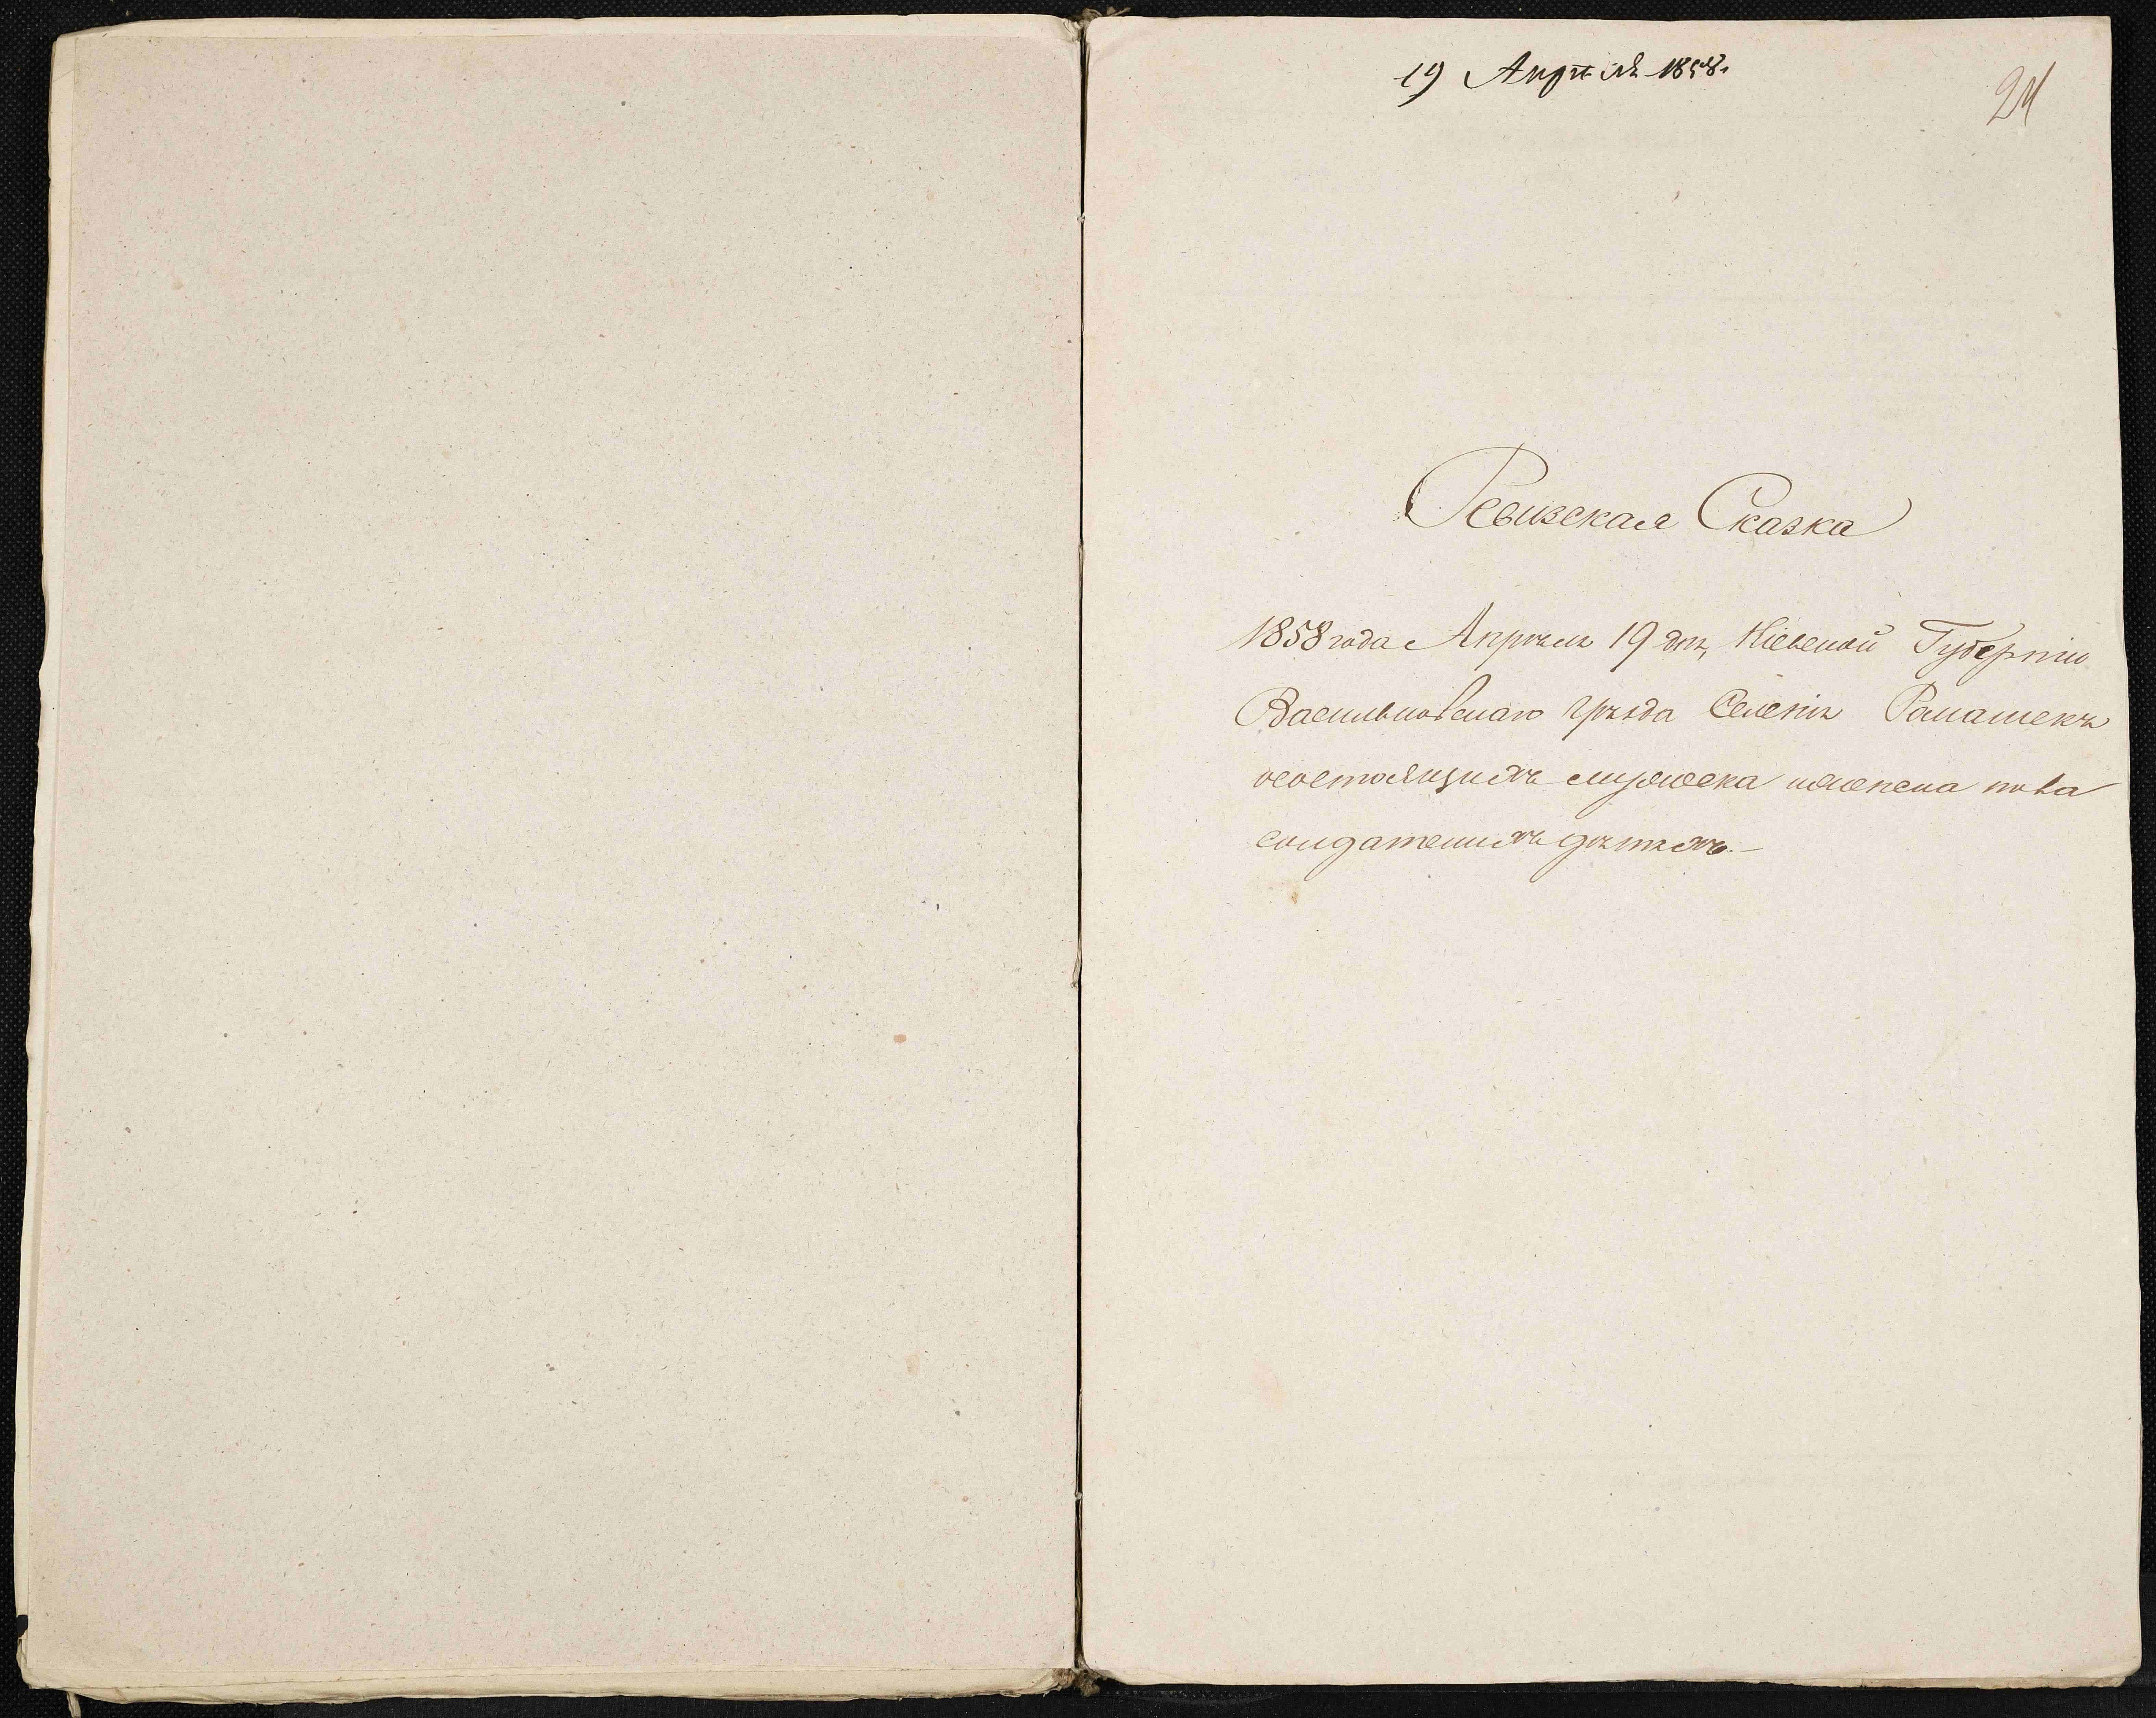 19 Апрѣля 1858.
24
Ревизская Сказка
1858 года Апрѣля 19 дня, Кіевской Губерніи
Васильковскаго уѣзда Селенія Ромашекъ
осостоящихъ мужеска иженска пола
солдатскихъ дѣтяхъ.—